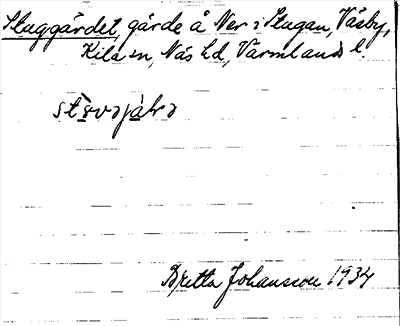 Stuggärdet, gärde å Ner i Stugan, Väsby,
Kila sn, Näs hd, Värmlands l.
Britta Johansson 1934